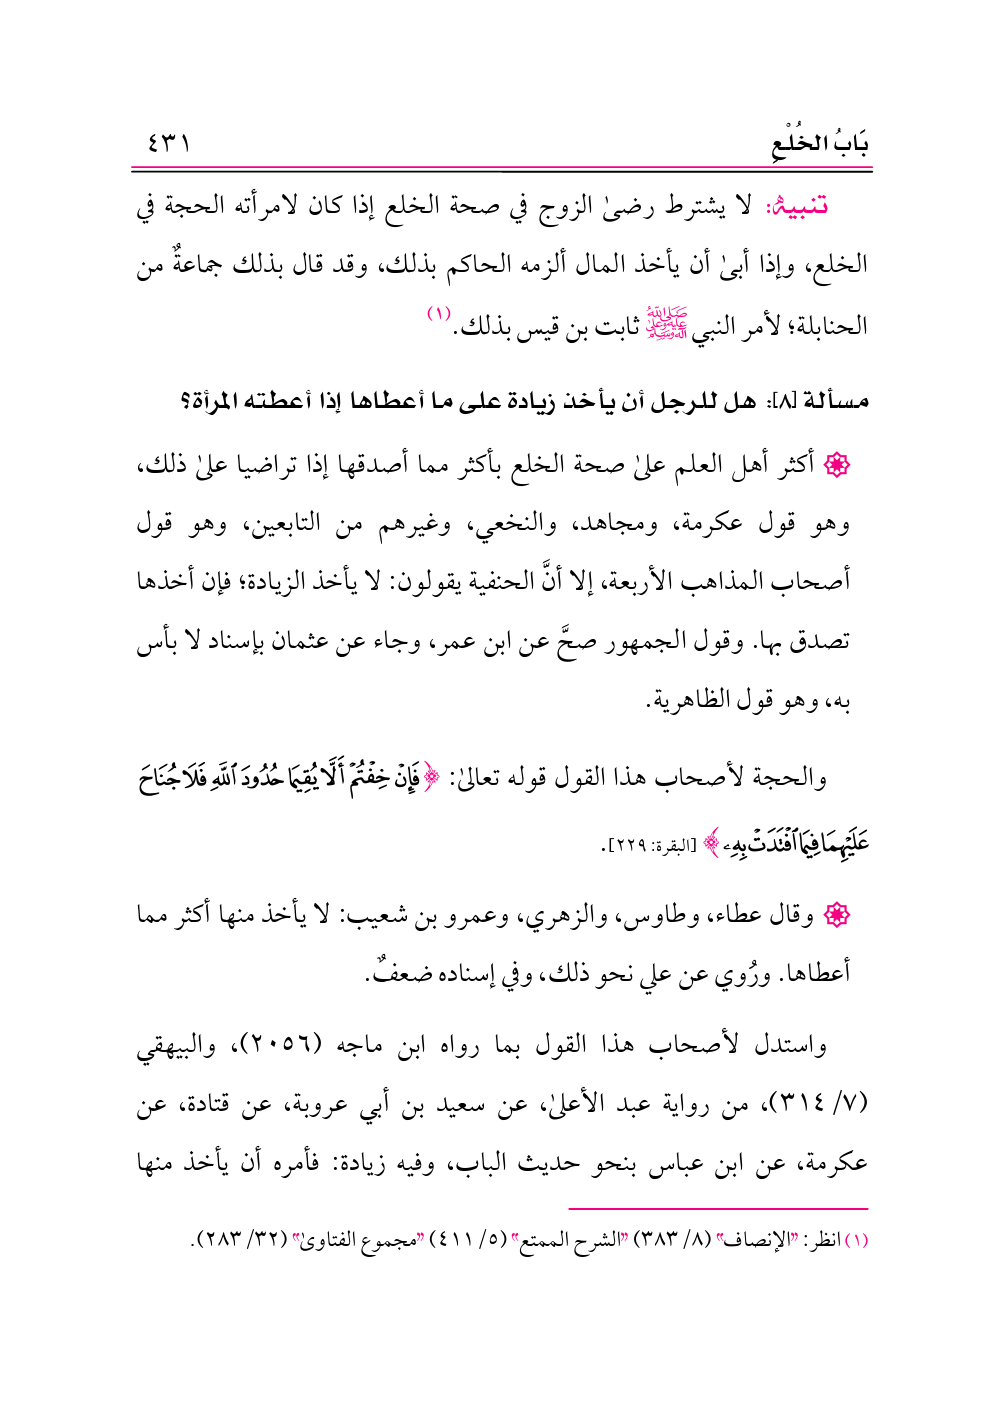 بَابُ الخُلْعِ ٤٣١
تنبيهٌ: لا يشترط رضىٰ الزوج في صحة الخلع إذا كان لامرأته الحجة في
الخلع، وإذا أبىٰ أن يأخذ المال ألزمه الحاكم بذلك، وقد قال بذلك جماعةٌ من
الحنابلة؛ لأمر النبي ﷺ ثابت بن قيس بذلك.(١)
مسألة [٨]: هل للرجل أن يأخذ زيادة على ما أعطاها إذا أعطته المرأة؟
أكثر أهل العلم علىٰ صحة الخلع بأكثر مما أصدقها إذا تراضيا علىٰ ذلك،
وهو قول عكرمة، ومجاهد، والنخعي، وغيرهم من التابعين، وهو قول
أصحاب المذاهب الأربعة، إلا أنَّ الحنفية يقولون: لا يأخذ الزيادة؛ فإن أخذها
تصدق بها. وقول الجمهور صحَّ عن ابن عمر، وجاء عن عثمان بإسناد لا بأس
به، وهو قول الظاهرية.
والحجة لأصحاب هذا القول قوله تعالىٰ: ﴿فَإِنْ خِفْتُمْ أَلَّا يُقِيمَا حُدُودَ ٱللَّهِ فَلَا جُنَاحَ
عَلَيْهِمَا فِيمَا ٱفْتَدَتْ بِهِۦ﴾ [البقرة: ٢٢٩].
وقال عطاء، وطاوس، والزهري، وعمرو بن شعيب: لا يأخذ منها أكثر مما
أعطاها. ورُوي عن علي نحو ذلك، وفي إسناده ضعفٌ.
واستدل لأصحاب هذا القول بما رواه ابن ماجه (٢٠٥٦)، والبيهقي
(٧/ ٣١٤)، من رواية عبد الأعلىٰ، عن سعيد بن أبي عروبة، عن قتادة، عن
عكرمة، عن ابن عباس بنحو حديث الباب، وفيه زيادة: فأمره أن يأخذ منها
(١) انظر: "الإنصاف" (٨/ ٣٨٣) "الشرح الممتع" (٥/ ٤١١) "مجموع الفتاوىٰ" (٣٢/ ٢٨٣).